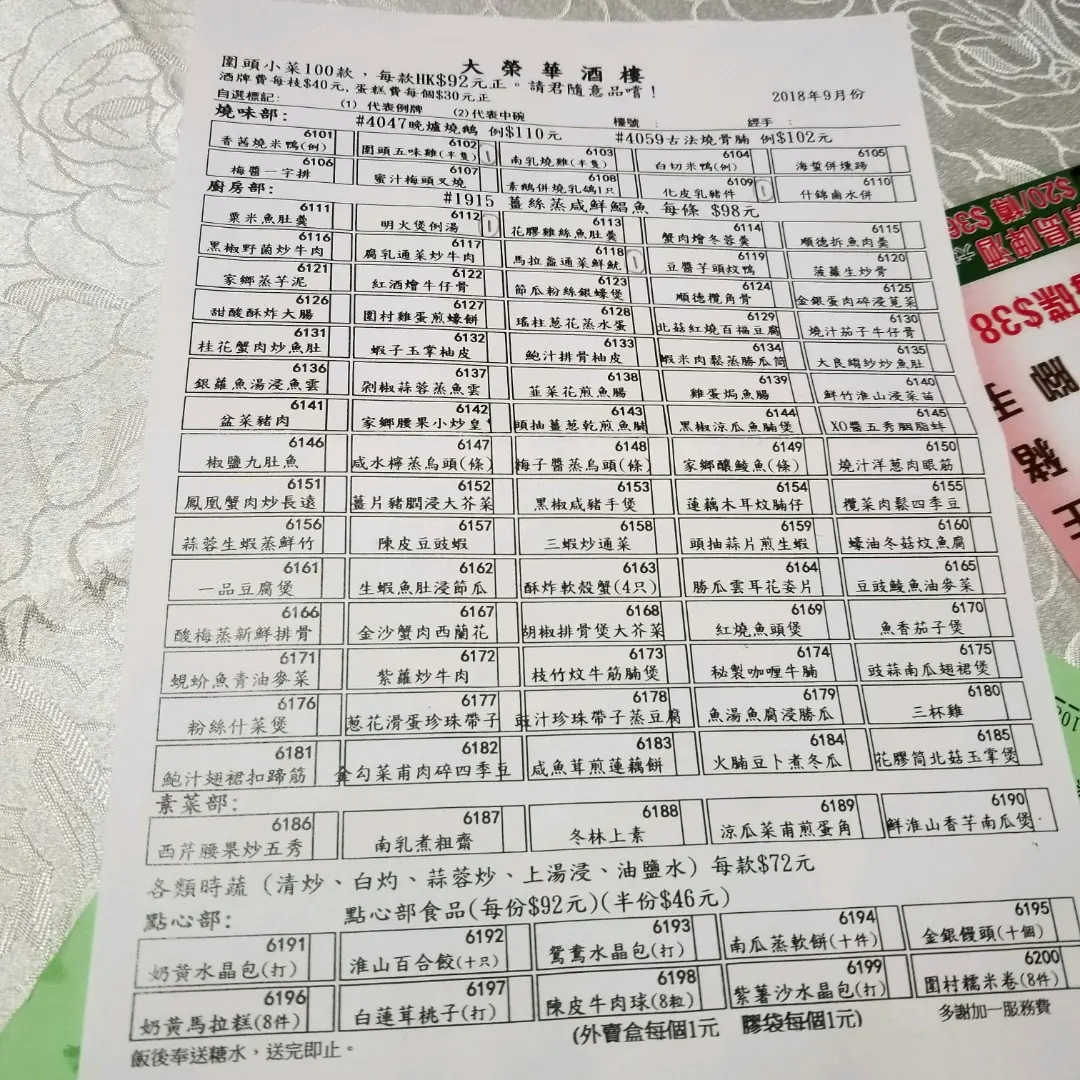 大榮華酒樓
圍頭小菜100款，每款HK$92元正。請君隨意品嚐！
酒牌費每枝$40元, 蛋糕費每個$30元正
2018年9月份
自選標記: (1) 代表例牌 (2)代表中碗 檯號 : 經手 :
燒味部: #4047晚爐燒鵝 例$110元 #4059古法燒骨腩 例$102元
6101 6102 6103 6104 6105
香茜燒米鴨(例) 圍頭五味雞(半隻) 南乳燒雞(半隻) 白切米鴨(例) 海蜇併燻蹄
6106 6107 6108 6109 6110
梅醬一字排 蜜汁梅頭叉燒 素鵝併燒乳鴿1只 化皮乳豬件 什錦鹵水併
廚房部: #1915 薑絲蒸咸鮮鯧魚 每條 $98元
6111 6112 6113 6114 6115
粟米魚肚羹 明火煲例湯 花膠雞絲魚肚羹 蟹肉燴冬蓉羹 順德拆魚肉羹
6116 6117 6118 6119 6120
黑椒野菌炒牛肉 腐乳通菜炒牛肉 馬拉盞通菜鮮魷 豆醬芋頭炆鴨 菠蘿生炒骨
6121 6122 6123 6124 6125
家鄉蒸芋泥 紅酒燴牛仔骨 節瓜粉絲銀蠔煲 順德欖角骨 金銀蛋肉碎浸莧菜
6126 6127 6128 6129 6130
甜酸酥炸大腸 圍村雞蛋煎蠔餅 瑤柱葱花蒸水蛋 北菇紅燒百福豆腐 燒汁茄子牛仔骨
6131 6132 6133 6134 6135
桂花蟹肉炒魚肚 蝦子玉掌柚皮 鮑汁排骨柚皮 蝦米肉鬆蒸勝瓜筒 大良縐紗炒魚肚
6136 6137 6138 6139 6140
銀蘿魚湯浸魚雲 剁椒蒜蓉蒸魚雲 韮菜花煎魚腸 雞蛋焗魚腸 鮮竹淮山浸菜苗
6141 6142 6143 6144 6145
盆菜豬肉 家鄉腰果小炒皇 頭抽薑葱乾煎魚腩 黑椒涼瓜魚腩煲 XO醬五秀胭脂蚌
6146 6147 6148 6149 6150
椒鹽九肚魚 咸水檸蒸烏頭(條) 梅子醬蒸烏頭(條) 家鄉釀鯪魚(條) 燒汁洋葱肉眼筋
6151 6152 6153 6154 6155
鳳凰蟹肉炒長遠 薑片豬膶浸大芥菜 黑椒咸豬手煲 蓮藕木耳炆腩仔 欖菜肉鬆四季豆
6156 6157 6158 6159 6160
蒜蓉生蝦蒸鮮竹 陳皮豆豉蝦 三蝦炒通菜 頭抽蒜片煎生蝦 蠔油冬菇炆魚腐
6161 6162 6163 6164 6165
一品豆腐煲 生蝦魚肚浸節瓜 酥炸軟殼蟹(4只) 勝瓜雲耳花姿片 豆豉鯪魚油麥菜
6166 6167 6168 6169 6170
酸梅蒸新鮮排骨 金沙蟹肉西蘭花 胡椒排骨煲大芥菜 紅燒魚頭煲 魚香茄子煲
6171 6172 6173 6174 6175
蜆蚧魚青油麥菜 紫蘿炒牛肉 枝竹炆牛筋腩煲 秘製咖喱牛腩 豉蒜南瓜翅裙煲
6176 6177 6178 6179 6180
粉絲什菜煲 葱花滑蛋珍珠帶子 豉汁珍珠帶子蒸豆腐 魚湯魚腐浸勝瓜 三杯雞
6181 6182 6183 6184 6185
鮑汁翅裙扣蹄筋 金勾菜甫肉碎四季豆 咸魚茸煎蓮藕餅 火腩豆卜煮冬瓜 花膠筒北菇玉掌煲
素菜部:
6186 6187 6188 6189 6190
西芹腰果炒五秀 南乳煮粗齋 冬林上素 涼瓜菜甫煎蛋角 鮮淮山香芋南瓜煲
各類時蔬 (清炒、白灼、蒜蓉炒、上湯浸、油鹽水) 每款$72元
點心部: 點心部食品(每份$92元)(半份$46元)
6191 6192 6193 6194 6195
奶黃水晶包(打) 淮山百合餃(十只) 鴛鴦水晶包(打) 南瓜蒸軟餅(十件) 金銀饅頭(十個)
6196 6197 6198 6199 6200
奶黃馬拉糕(8件) 白蓮茸桃子(打) 陳皮牛肉球(8粒) 紫薯沙水晶包(打) 圍村糯米卷(8件)
(外賣盒每個1元 膠袋每個1元) 多謝加一服務費
飯後奉送糖水，送完即止。
島啤酒
$20/
$38